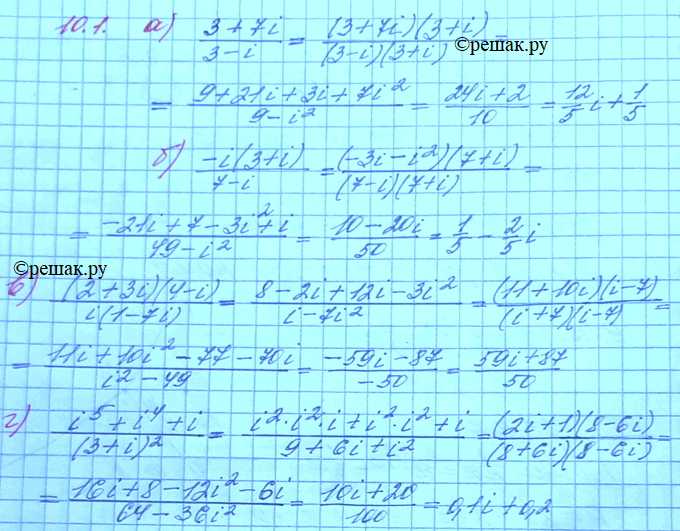 10.1. а) (3+7i)/(3-i) = ((3+7i)(3+i))/((3-i)(3+i)) =
©решак.ру
= (9+21i+3i+7i²)/(9-i²) = (24i+2)/10 = 12/5 i + 1/5
б) (-i(3+i))/(7-i) = ((-3i-i²)(7+i))/((7-i)(7+i)) =
= (-21i+7-3i²+i)/(49-i²) = (10-20i)/50 = 1/5 - 2/5 i
©решак.ру
в) ((2+3i)(4-i))/(i(1-7i)) = (8-2i+12i-3i²)/(i-7i²) = ((11+10i)(i-7))/((i+7)(i-7)) =
= (11i+10i²-77-70i)/(i²-49) = (-59i-87)/(-50) = (59i+87)/50
г) (i⁵+i⁴+i)/((3+i)²) = (i²·i²·i+i²·i²+i)/(9+6i+i²) = ((2i+1)(8-6i))/((8+6i)(8-6i)) =
= (16i+8-12i²-6i)/(64-36i²) = (10i+20)/100 = 0,1i+0,2